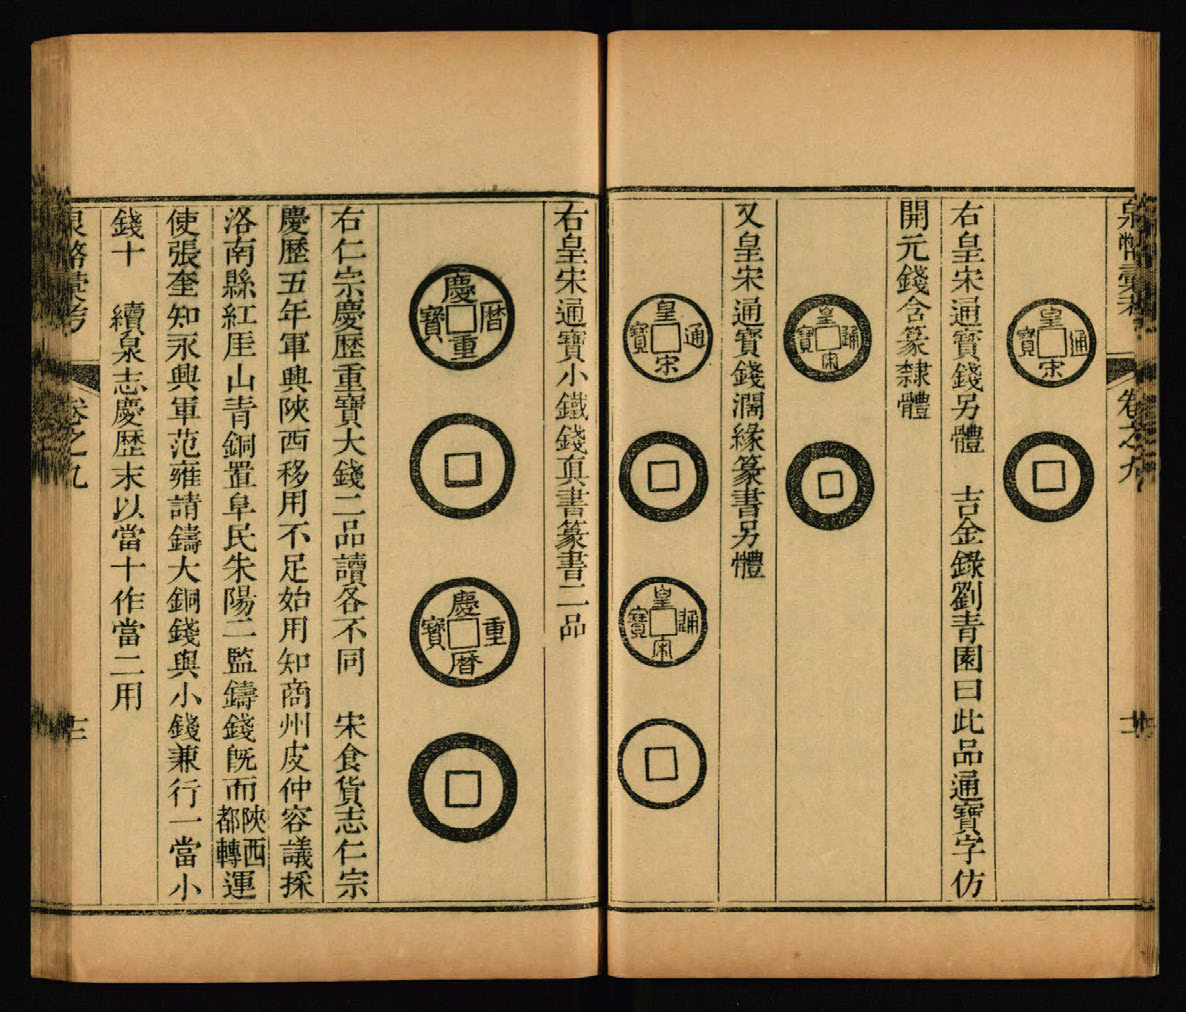 泉幣彙考 卷之九 十二
皇宋通寶
右皇宋通寶錢另體 吉金錄劉青園曰此品通寶字仿
開元錢含篆隸體
皇宋通寶
又皇宋通寶錢濶緣篆書另體
皇宋通寶
皇宋通寶
右皇宋通寶小鐵錢眞書篆書二品
慶曆重寶
慶曆重寶
右仁宗慶歷重寶大錢二品讀各不同 宋食貨志仁宗
慶歷五年軍興陝西移用不足始用知商州皮仲容議採
洛南縣紅厓山青銅置阜民朱陽二監鑄錢旣而陝西都轉運
使張奎知永興軍范雍請鑄大銅錢與小錢兼行一當小
錢十 續泉志慶歷末以當十作當二用
泉幣彙考 卷之九